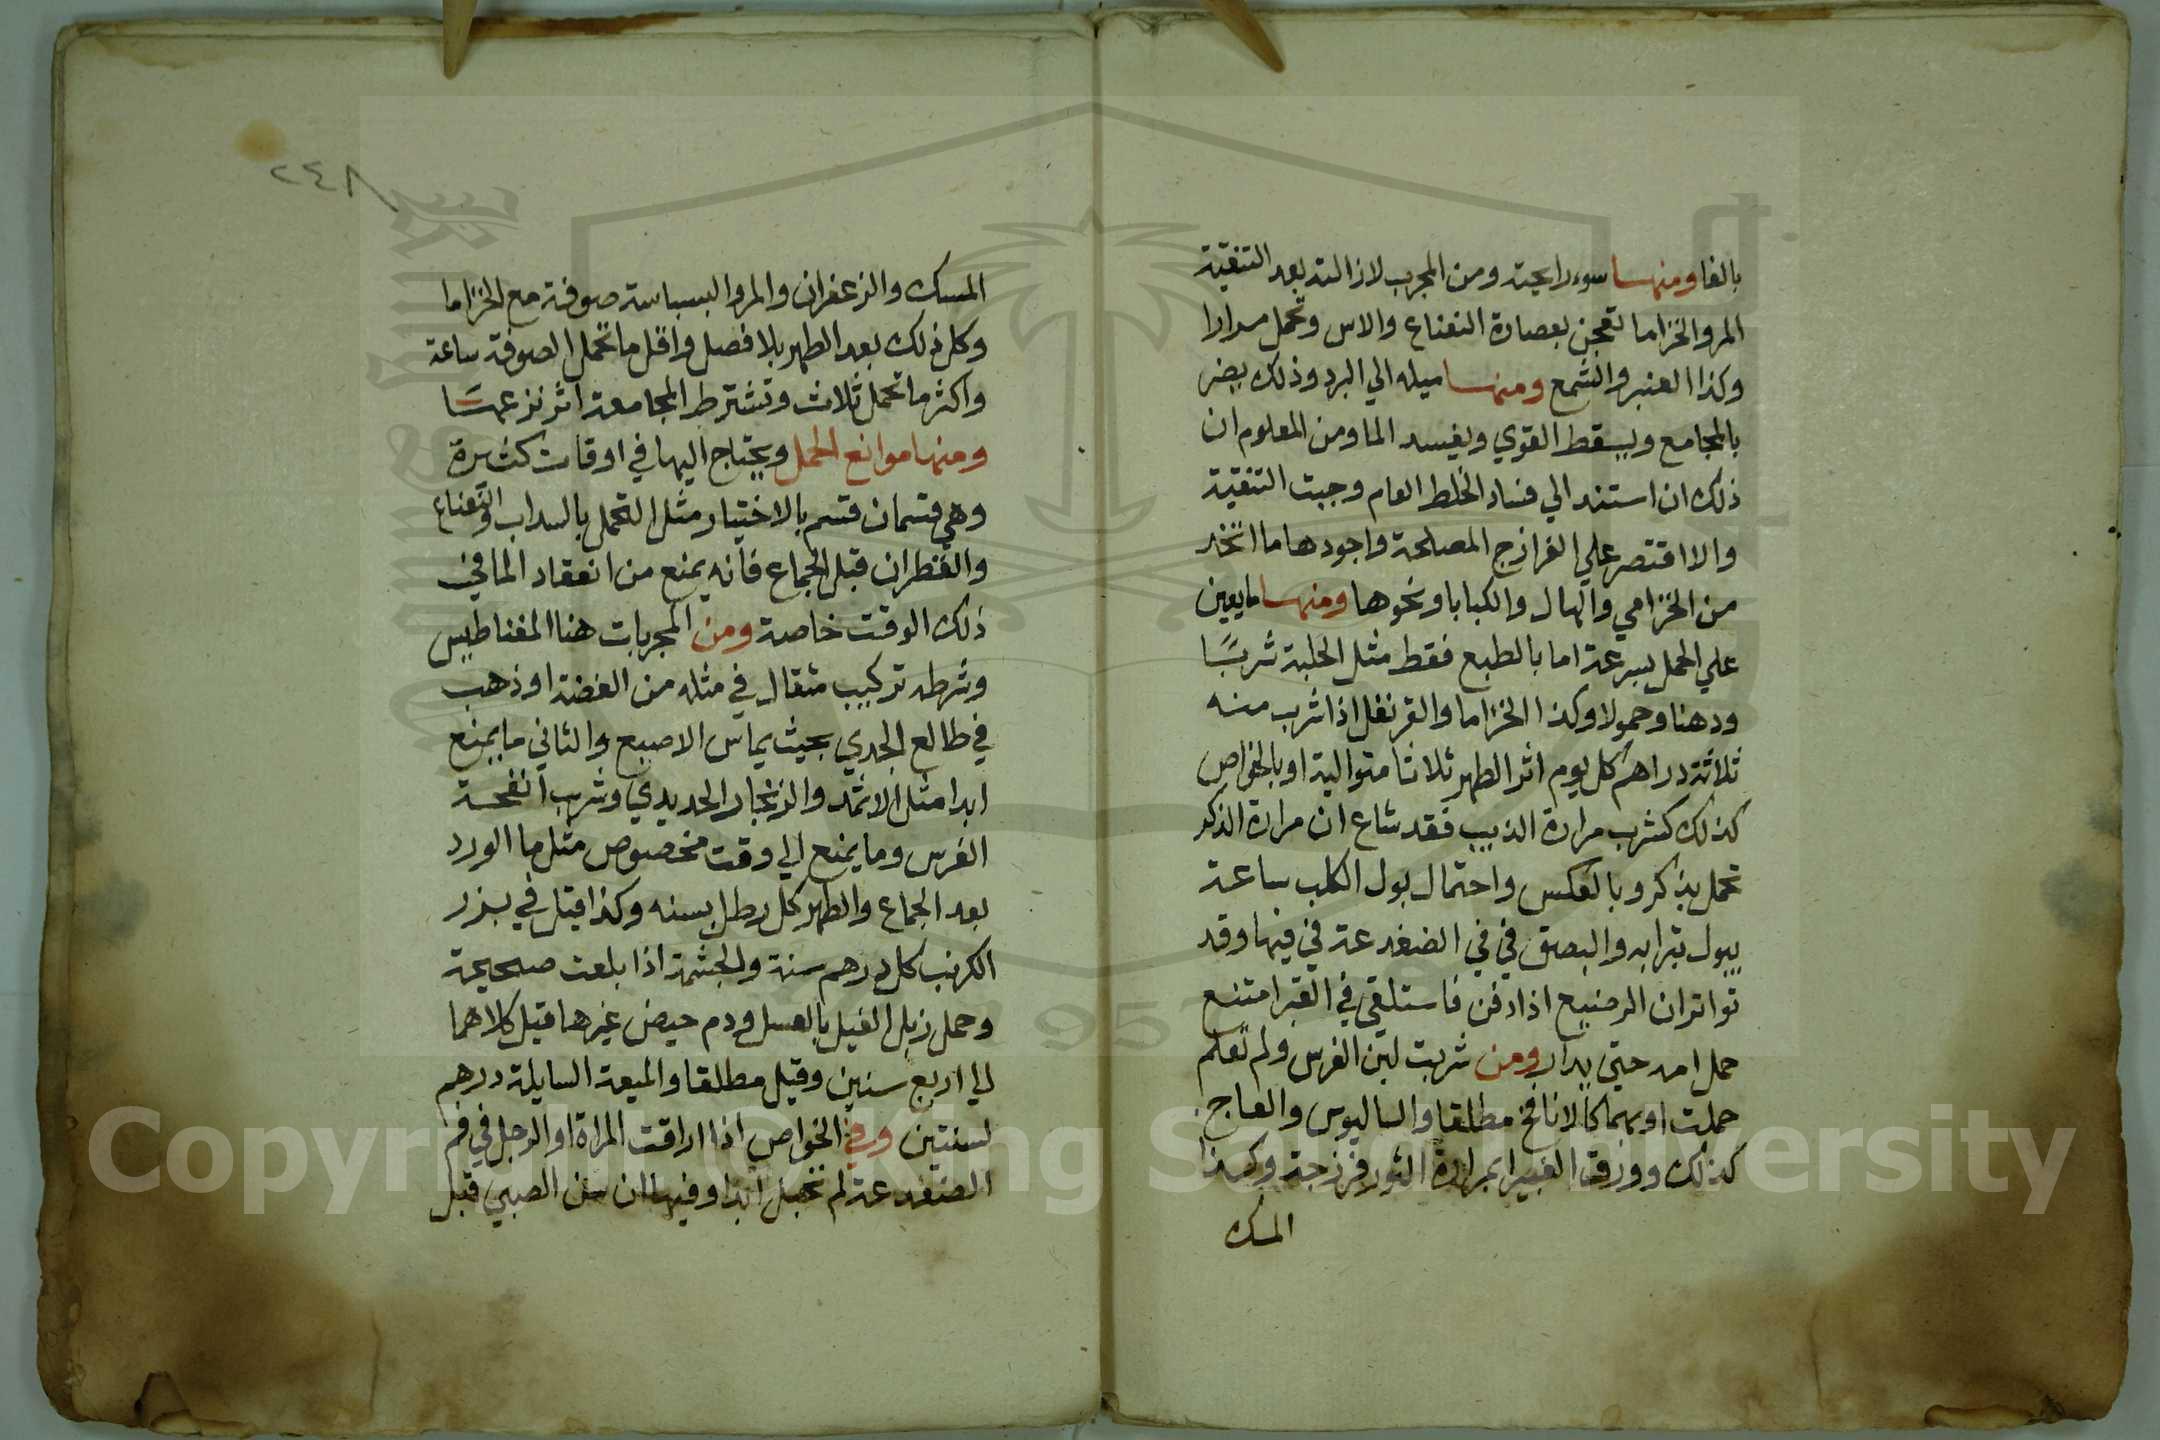 بالغا ومنها سوء رايحته ومن المجرب لازالته بعد التنقية
المر والخزاما تعجن بعصارة النعناع والاس وتحمل مرارا
وكذا العنبر والشمع ومنها ميله الي البرد وذلك يضر
بالمجامع ويسقط القوي ويفسد الما ومن المعلوم ان
ذلك ان استند الي فساد الخلط العام وجبت التنقية
والا اقتصر علي الفرازج المصلحة واجودها ما اتخذ
من الخزامي والهال والكبابا ونحوها ومنها ما يعين
علي الحمل بسرعة اما بالطبع فقط مثل الحلبة شربًا
ودهنا وحمولا وكذا الخزاما والقرنفل اذا شرب منه
ثلاثة دراهم كل يوم اثر الطهر ثلاثا متوالية او بالخواص
كذلك كشرب مرارة الذيب فقد شاع ان مرارة الذكر
تحمل بذكر وبالعكس واحتمال بول الكلب ساعة
يبول بترابه والبصق في في الضفدعة في فيها وقد
تواتر ان الرضيع اذا دفن فاستلقي في القبر امتنع
حمل امه حتي يدار ومن شربت لبن الفرس ولم تعلم
حملت او بهما كالانافخ مطلقا والساليوس والعاج
كذلك وورق الغبيرا بمرارة الثور فرزجة وكذا
المسك
٢٤٨
المسك والزعفران والمر والبسباسة صوفة مع الخزاما
وكل ذلك بعد الطهر بلا فصل واقل ما تحمل الصوفة ساعة
واكثر ما تحمل ثلاث وتشترط المجامعة اثر نزعها
ومنها موانع الحمل ويحتاج اليها في اوقات كثيرة
وهي قسمان قسم بالاختيار مثل التحمل بالسداب والنعناع
والقطران قبل الجماع فانه يمنع من انعقاد الما في
ذلك الوقت خاصة ومن المجربات هنا المغناطيس
وشرطه تركيب مثقال في مثله من الفضة او ذهب
في طالع الجدي بحيث يماس الاصبع والثاني ما يمنع
ابدا مثل الاثمد والزنجار الحديدي وشرب انفحة
الفرس وما يمنع الي وقت مخصوص مثل ما الورد
بعد الجماع والطهر كل رطل بسنه وكذا قيل في بزر
الكرنب كل درهم سنة والجشمة اذا بلعت صحيحة
وحمل زبل الفيل بالعسل ودم حيض غيرها قيل كلاهما
الي اربع سنين وقيل مطلقا والميعة السايلة درهم
لسنتين وفي الخواص اذا اراقت المراة او الرجل في فم
الضفدعة لم تحبل ابدا وفيها ان سن الصبي قبل